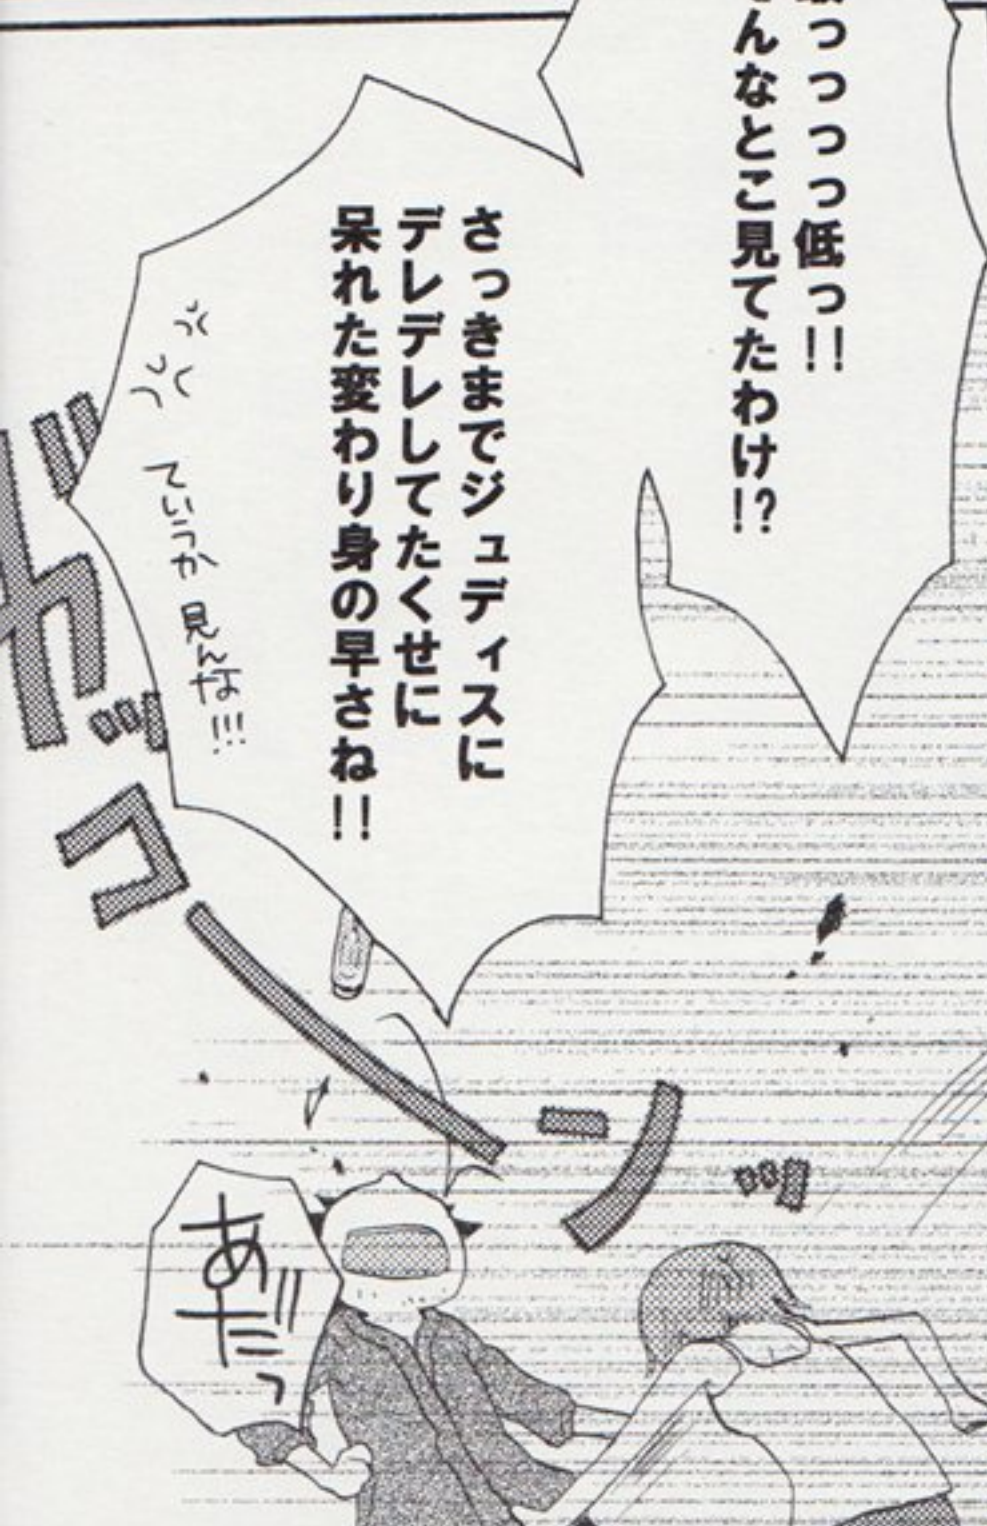 っっっっ低っ!!
んなとこ見てたわけ!?
さっきまでジュディスに
デレデレしてたくせに
呆れた変わり身の早さね!!
ていうか 見んな!!!
ガッ
コーンッ
あだっ